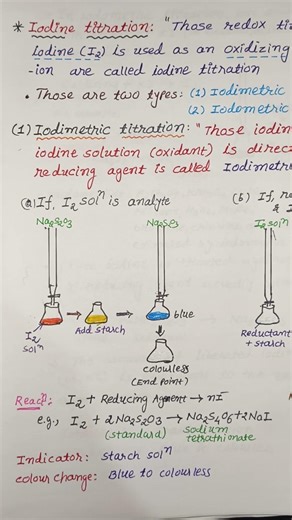 * Iodine titration: "Those redox tit
Iodine (I2) is used as an oxidizing
-ion are called iodine titration
• Those are two types: (1) Iodimetric
(2) Iodometric
(1) Iodimetric titration: "Those iodin
iodine solution (oxidant) is direc
reducing agent is called Iodimetr
(a) If, I2 solⁿ is analyte
(b) If, re
Na2S2O3
I2 solⁿ
I2
solⁿ
Add starch
blue
colourless
(End Point)
Reductant
+ starch
Reacⁿ: I2 + Reducing Agment → nI⁻
e.g., I2 + 2Na2S2O3 → Na2S4O6 + 2NaI
(standard) sodium
tetrathionate
Indicator: starch solⁿ
colour change: Blue to colourless